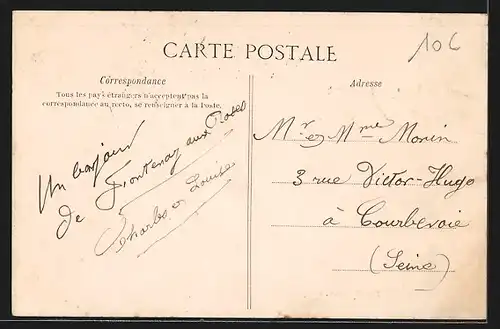 10 C
CARTE POSTALE
Côrrespondance
Tous les pays étrangers n'acceptent pas la
correspondance au recto, se renseigner à la Poste.
Un bonjour
de Fontenay aux Roses
Charles et Louise
Adresse
Mr et Mme Morin
3 rue Victor-Hugo
à Courbevoie
(Seine)